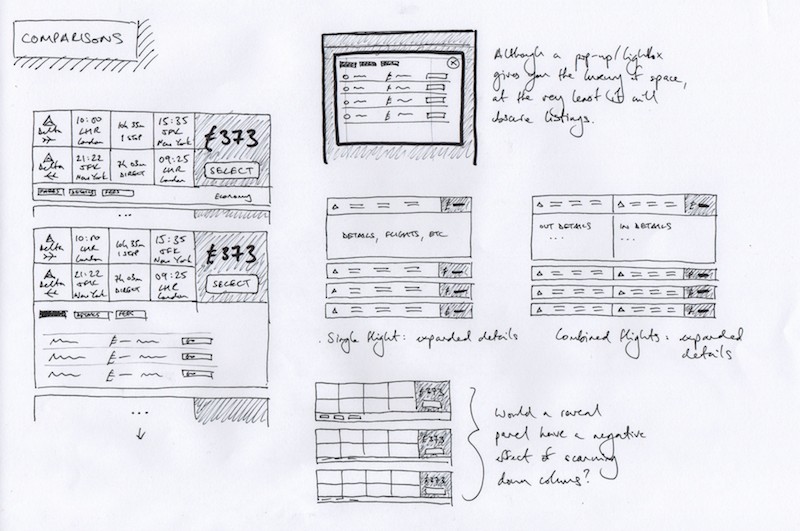 COMPARISONS
Delta
10:00
LHR
London
10h 35m
1 STOP
15:35
JFK
New York
£373
Delta
21:22
JFK
New York
7h 03m
DIRECT
09:25
LHR
London
SELECT
FARES DETAILS FEES
Economy
...
Delta
10:00
LHR
London
10h 35m
1 STOP
15:35
JFK
New York
£373
Delta
21:22
JFK
New York
7h 03m
DIRECT
09:25
LHR
London
SELECT
DETAILS FEES
£
£
£
...
Although a pop-up/lightbox
gives you the luxury of space,
at the very least it will
obscure listings.
DETAILS, FLIGHTS, ETC
. Single flight: expanded details
OUT DETAILS
...
IN DETAILS
...
Combined flights: expanded
details
£273
£273
£273
Would a reveal
panel have a negative
effect of scanning
down colums?